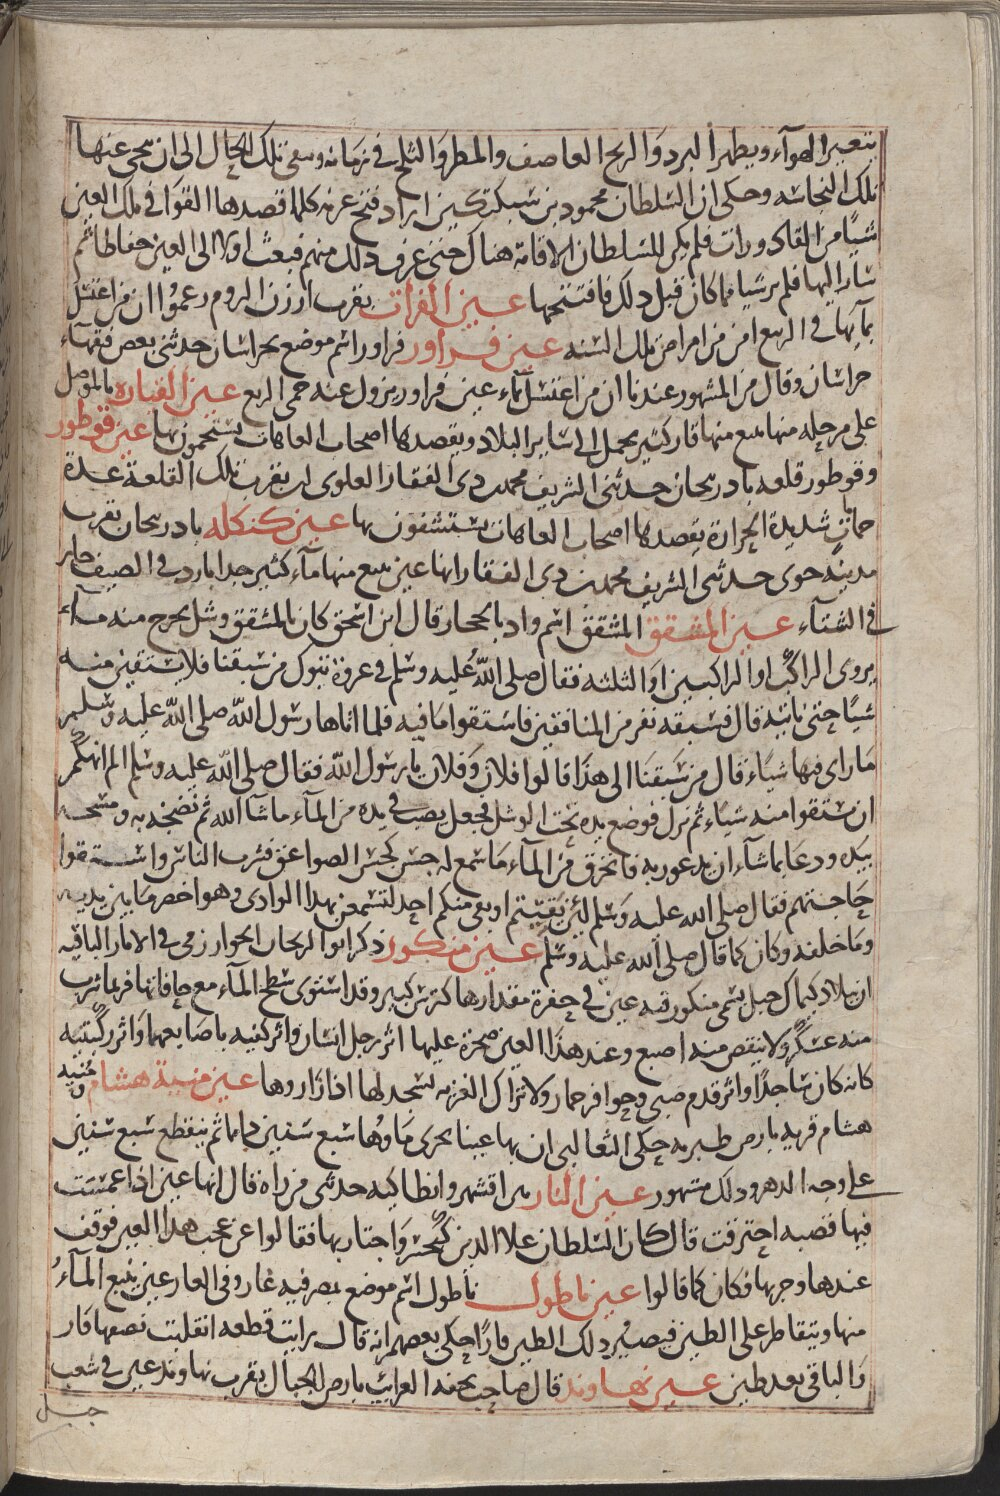 يتغير الهوآء ويظهر البرد والريح العاصف والمطر والثلج في زمانه ويبقى تلك الحال الى ان ينحى عنها
تلك النجاسه وحكى ان السلطان محمود بن سبكتكين اراد فتح غزنه كلما قصدها القوا في تلك العين
شيًا من القاذورات فلم يمكن للسلطان الاقامة هناك حتى عرف ذلك منهم فبعث اولا الى العين حفاظا ثم
سار اليها فلم ير شيا مما كان قبل ذلك فافتتحها عين الفرات بقرب ارزن الروم زعموا ان من اغتسل
بمآيها في الربيع امن من امراض تلك السنه عين فراور فراور اسم موضع بخراسان حدثني بعض فقهآء
خراسان وقال من المشهور عندنا ان من اغتسل بمآء عين فراور يزول عنه حمى الربع عين القيارة بالموصل
على مرحله منها ينبع منها قار كثير يحمل الى ساير البلاد ويقصدها اصحاب العاهات يستحمون بها عين قوطور
وقوطور قلعه باذربيجان حدثني الشريف محمد بن ذى الفقار العلوى ان بقرب تلك القلعة عدة
حماتٍ شديدة الحرارة يقصدها اصحاب العاهات يستشفون بها عين كنكله باذربيجان بقرب
مدينه خوى حدثني الشريف محمد بن ذى الفقار انها عين ينبع منها مآء كثير جدا بارد في الصيف حار
في الشتآء عين المشقق المشقق اسم واد بالحجاز قال ابن اسحق كان بالمشقق وشل يخرج منه مآء
يروى الراكب او الراكبين او الثلثه فقال صلى الله عليه وسلم في غزوة تبوك من سبقنا فلا يستقين منه
شيًا حتى ناتيه قال فسبقه نفر من المنافقين فاستقوا ما فيه فلما اتاها رسول الله صلى الله عليه وسلم
ما راى فيها شيًاء قال من سبقنا الى هذا قالوا فلان وفلان يا رسول الله فقال صلى الله عليه وسلم الم انهكم
ان تستقوا منه شيًاء ثم نزل فوضع يده تحت الوشل فجعل يصب في يده من المآء ما شآ الله ثم نضخه به ومسحه
بيده ودعا بما شآء ان يدعو ربه فانخرق من المآء ما سمع له حس كحس الصواعق فشرب الناس واستقوا
حاجتهم فقال صلى الله عليه وسلم لئن بقيتم او بقى منكم احد لتسمعن بهذا الوادى وهو اخصر ما بين يديه
وما خلفه وكان كما قال صلى الله عليه وسلم عين منكور ذكر ابو الريحان الخوارزمي في الاثار الباقيه
ان ببلاد كيماك جبل يسمى منكور فيه عين في حفرة مقدارها كترس كبير وقد استوى سطح المآء مع حافاتها فربما شرب
منه عسكر ولا ينقص منه اصبع وعند هذا العين صخرة عليها اثر رجل انسان واثر كفيه باصابعهما واثر ركبتيه
كانه كان ساجدًا واثر قدم صبي وحوافر حمار والاتراك الغزيه يسجد لها اذا زاروها عين منية هشام منيه
هشام قريه بارض طبريه حكى الثعالبي ان بها عينا يجرى ماؤها سبع سنين دايما ثم ينقطع سبع سنين
على وجه الدهر وذلك مشهور عين النار بين اقشهر وانطاكيه حدثني من رآه قال انها عين اذا غمست
فيها قصبه احترقت قال كان السلطان علاء الدين كيخسرو اجتاز بها فقالوا عن عجب هذا العين فوقف
عندها وجربها فكان كما قالوا عين ناطول ناطول اسم موضع بمصر فيه غار وفي الغار عين ينبع المآءُ
منها ويتقاطر على الطين فيصير ذلك الطين فارًا حكى بعضهم انه قال رايت قطعه انقلبت نصفها فار
والباقى بعد طين عين نهاوند قال صاحب تحفه الغرايب بارض الجبال بقرب نهاوند عين في شعب
جبل